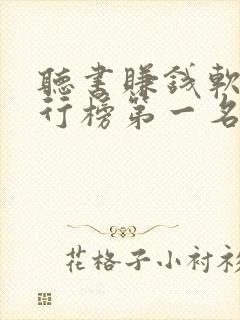 聽書賺錢軟
行榜第一名
花格子小衬衫